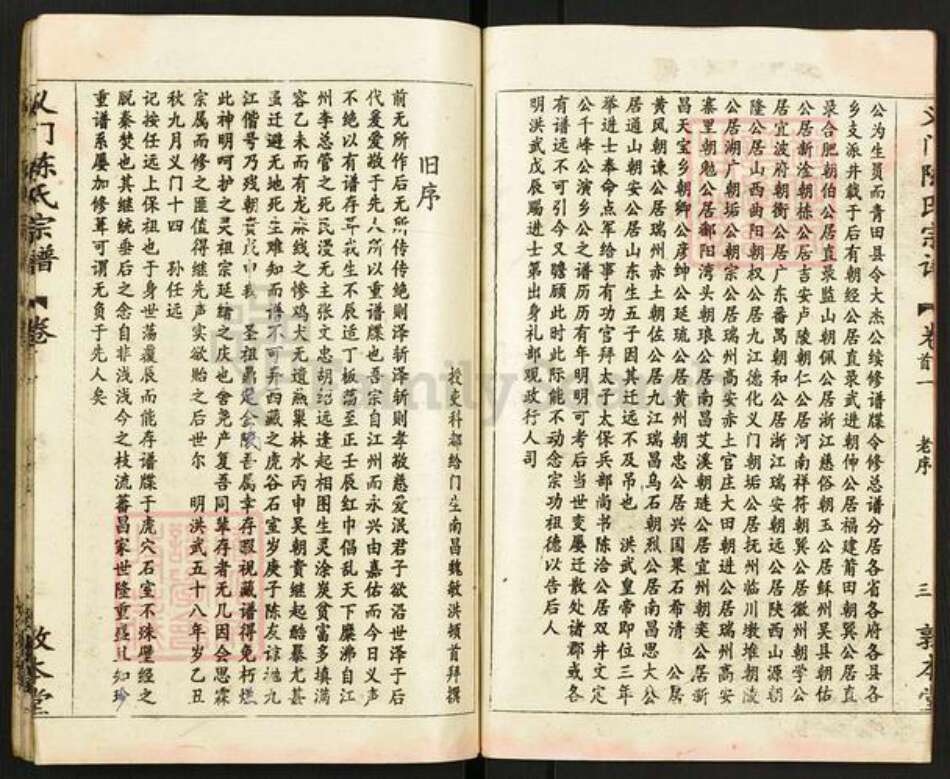 公为生员而青田县令大杰公续修谱牒今修总谱分居各省各府各县各
乡支派井载于后有朝经公居直录武进朝伸公居福建莆田朝翼公居直
录合肥朝伯公居直录监山朝佩公居浙江慈俗朝玉公居稣州吴县朝佑
公居新淦朝栋公居吉安卢陵朝仁公居河南祥符朝翼公居徽州朝学公
居宜波府朝衡公居广东番禺朝和公居浙江瑞安朝远公居陕西山源朝
隆公居山西曲阳朝权公居九江德化义门朝垢公居抚州临川墩堆朝陵
公居湖广朝垢公朝宗公居瑞州高安赤土官庄大田朝进公居瑞州高安
寨里朝勉公居鄱阳湾头朝琅公居南昌艾溪朝琏公居宜州朝奕公居新
昌天宝乡朝卿公彦绅公延琉公居黄州朝忠公居兴国果石希清 公居
黄风朝谏公居瑞州赤土朝佐公居九江瑞昌乌石朝烈公居南昌思大公
居通山朝安公居山东生五子因其迁远不及吊也 洪武皇帝即位三年
举进士奉命点军给事有功官拜太子太保兵部尚书陈洽公居双井文定
公千峰公演乡公之谱历历有年明明可考后当世变屡迁散处诸郡或各
有谱远不可引今又瞻顾此时此际能不动念宗功祖德以告后人
明洪武戊辰赐进士第出身礼部观政行人司
卷首一
老序
三
敦本堂
旧序
授吏科都给门生南昌魏敏洪顿首拜撰
前无所作后无所传传绝则泽斩泽斩则孝敬慈爱泯君子欲浴世泽于后
代爱爱敬于先人所以重谱牒也吾宗自江州而永兴由嘉佑而今日义声
不绝以有谱存耳我生不辰适丁板荡至正壬辰红巾倡乱天下糜沸自江
州李总管之死民浸无主张文忠胡绍远逢起相图生灵涂炭贫富多填满
容乙未而有龙麻线之惨鸡犬无遗燕巢林水丙申吴朝贵继起酷暴尤甚
虽迁避无地死生难知而谱不可弃西藏之虎谷石室岁庚子陈友谅九
江僭号乃残朝贵 圣祖鼎定金陵吾属幸存暇视藏谱得免朽
此神明呵护之灵祖宗延绪之庆也舍免产复吾同辈存者无几因会思霖
宗属而修之匣值得继先声实欲贻之后世尔 明洪武五十八年岁乙丑
秋九月义门十四 孙任远
记按任远上保祖也于身世荡覆辰而能存谱牒于虎穴石室不殊壁经之
脱秦焚也其继统垂后之念自非浅浅今之枝流蕃昌家世隆重 知珍
重谱系屡加修葺可谓无负于先人矣
义门陈氏宗谱
卷
敦本堂